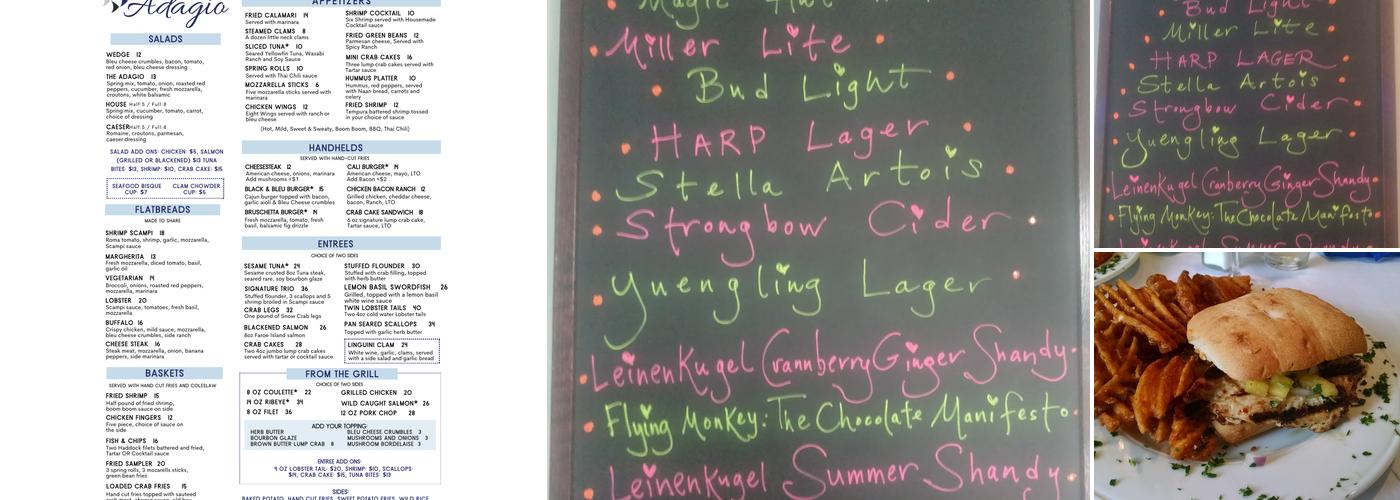 Adagio
SALADS
WEDGE 12
Bleu cheese crumbles, bacon, tomato,
red onion, bleu cheese dressing
THE ADAGIO 13
Spring mix, tomato, onion, roasted red
peppers, cucumber, fresh mozzarella,
croutons, white balsamic
HOUSE Half: 5 / Full: 8
Spring mix, cucumber, tomato, carrot,
choice of dressing
CAESER Half: 5 / Full: 8
Romaine, croutons, parmesan,
caeser dressing
SALAD ADD ONS: CHICKEN: $5, SALMON
(GRILLED OR BLACKENED) $13 TUNA
BITES: $13, SHRIMP: $10, CRAB CAKE: $15
SEAFOOD BISQUE
CUP: $7
CLAM CHOWDER
CUP: $6
FLATBREADS
MADE TO SHARE
SHRIMP SCAMPI 18
Roma tomato, shrimp, garlic, mozzarella,
Scampi sauce
MARGHERITA 13
Fresh mozzarella, diced tomato, basil,
garlic oil
VEGETARIAN 14
Broccoli, onions, roasted red peppers,
mozzarella, marinara
LOBSTER 20
Scampi sauce, tomatoes, fresh basil,
mozzarella
BUFFALO 16
Crispy chicken, mild sauce, mozzarella,
bleu cheese crumbles, side ranch
CHEESE STEAK 16
Steak meat, mozzarella, onion, banana
peppers, side marinara
BASKETS
SERVED WITH HAND CUT FRIES AND COLESLAW
FRIED SHRIMP 15
Half pound of fried shrimp,
boom boom sauce on side
CHICKEN FINGERS 12
Five piece, choice of sauce on
the side
FISH & CHIPS 16
Two Haddock filets battered and fried,
Tartar OR Cocktail sauce
FRIED SAMPLER 20
3 spring rolls, 3 mozarells sticks,
green bean fries
LOADED CRAB FRIES 15
Hand cut fries topped with sauteed
APPETIZERS
FRIED CALAMARI 14
Served with marinara
STEAMED CLAMS 8
A dozen little neck clams
SLICED TUNA* 10
Seared Yellowfin Tuna, Waxabi
Ranch and Soy Sauce
SPRING ROLLS 10
Served with Thai Chili sauce
MOZZARELLA STICKS 6
Five mozzarella sticks served with
marinara
CHICKEN WINGS 12
Eight Wings served with ranch or
bleu cheese
SHRIMP COCKTAIL 10
Six Shrimp served with Housemade
Cocktail sauce
FRIED GREEN BEANS 12
Parmesan cheese, Served with
Spicy Ranch
MINI CRAB CAKES 16
Three lump crab cakes served with
Tartar sauce
HUMMUS PLATTER 10
Hummus, red peppers, served
with Naan bread, carrots and
celery
FRIED SHRIMP 12
Tempura battered shrimp tossed
in your choice of sauce:
(Hot, Mild, Sweet & Sweaty, Boom Boom, BBQ, Thai Chili)
HANDHELDS
SERVED WITH HAND-CUT FRIES
CHEESESTEAK 12
American cheese, onions, marinara
Add mushrooms +$1
BLACK & BLEU BURGER* 15
Cajun burger topped with bacon,
garlic aioli & Bleu Cheese crumbles
BRUSCHETTA BURGER* 14
Fresh mozzarella, tomato, fresh
basil, balsamic fig drizzle
CALI BURGER* 14
American cheese, mayo, LTO
Add Bacon +$2
CHICKEN BACON RANCH 12
Grilled chicken, cheddar cheese,
bacon, Ranch, LTO
CRAB CAKE SANDWICH 18
6 oz signature lump crab cake,
Tartar sauce, LTO
ENTREES
CHOICE OF TWO SIDES
SESAME TUNA* 24
Sesame crusted 8oz Tuna steak,
seared rare, soy bourbon glaze
SIGNATURE TRIO 36
Stuffed flounder, 3 scallops and 5
shrimp broiled in Scampi sauce
CRAB LEGS 32
One pound of Snow Crab legs
BLACKENED SALMON 26
8oz Faroe Island salmon
CRAB CAKES 28
Two 4oz jumbo lump crab cakes
served with tartar or cocktail sauce
STUFFED FLOUNDER 30
Stuffed with crab filling, topped
with herb butter
LEMON BASIL SWORDFISH 26
Grilled, topped with a lemon basil
white wine sauce
TWIN LOBSTER TAILS 40
Two 4oz cold water Lobster tails
PAN SEARED SCALLOPS 34
Topped with garlic herb butter
LINGUINI CLAM 24
White wine, garlic, clams, served
with a side salad and garlic bread
FROM THE GRILL
CHOICE OF TWO SIDES
8 OZ COULETTE* 22
14 OZ RIBEYE* 34
8 OZ FILET 36
GRILLED CHICKEN 20
WILD CAUGHT SALMON* 26
12 OZ PORK CHOP 28
ADD YOUR TOPPING:
HERB BUTTER
BOURBON GLAZE
BROWN BUTTER LUMP CRAB 8
BLEU CHEESE CRUMBLES 3
MUSHROOMS AND ONIONS 3
MUSHROOM BORDELAISE 3
ENTREE ADD ONS:
4 OZ LOBSTER TAIL: $20, SHRIMP: $10, SCALLOPS:
$14, CRAB CAKE: $15, TUNA BITES: $13
SIDES:
BAKED POTATO, HAND CUT FRIES, SWEET POTATO FRIES, WILD RICE,
Miller Lite
Bud Light
HARP Lager
Stella Artois
Strongbow Cider
Yuengling Lager
Leinenkugel CrannberryGinger Shandy
Flying Monkey: The Chocolate Manifesto
Leinenkugel Summer Shandy
Bud Light
Miller Lite
HARP LAGER
Stella Artois
Strongbow Cider
Yuengling Lager
Leinenkugel Cranberry Ginger Shandy
Flying Monkey: The Chocolate Manifesto
Leinenkugel Summer Shandy